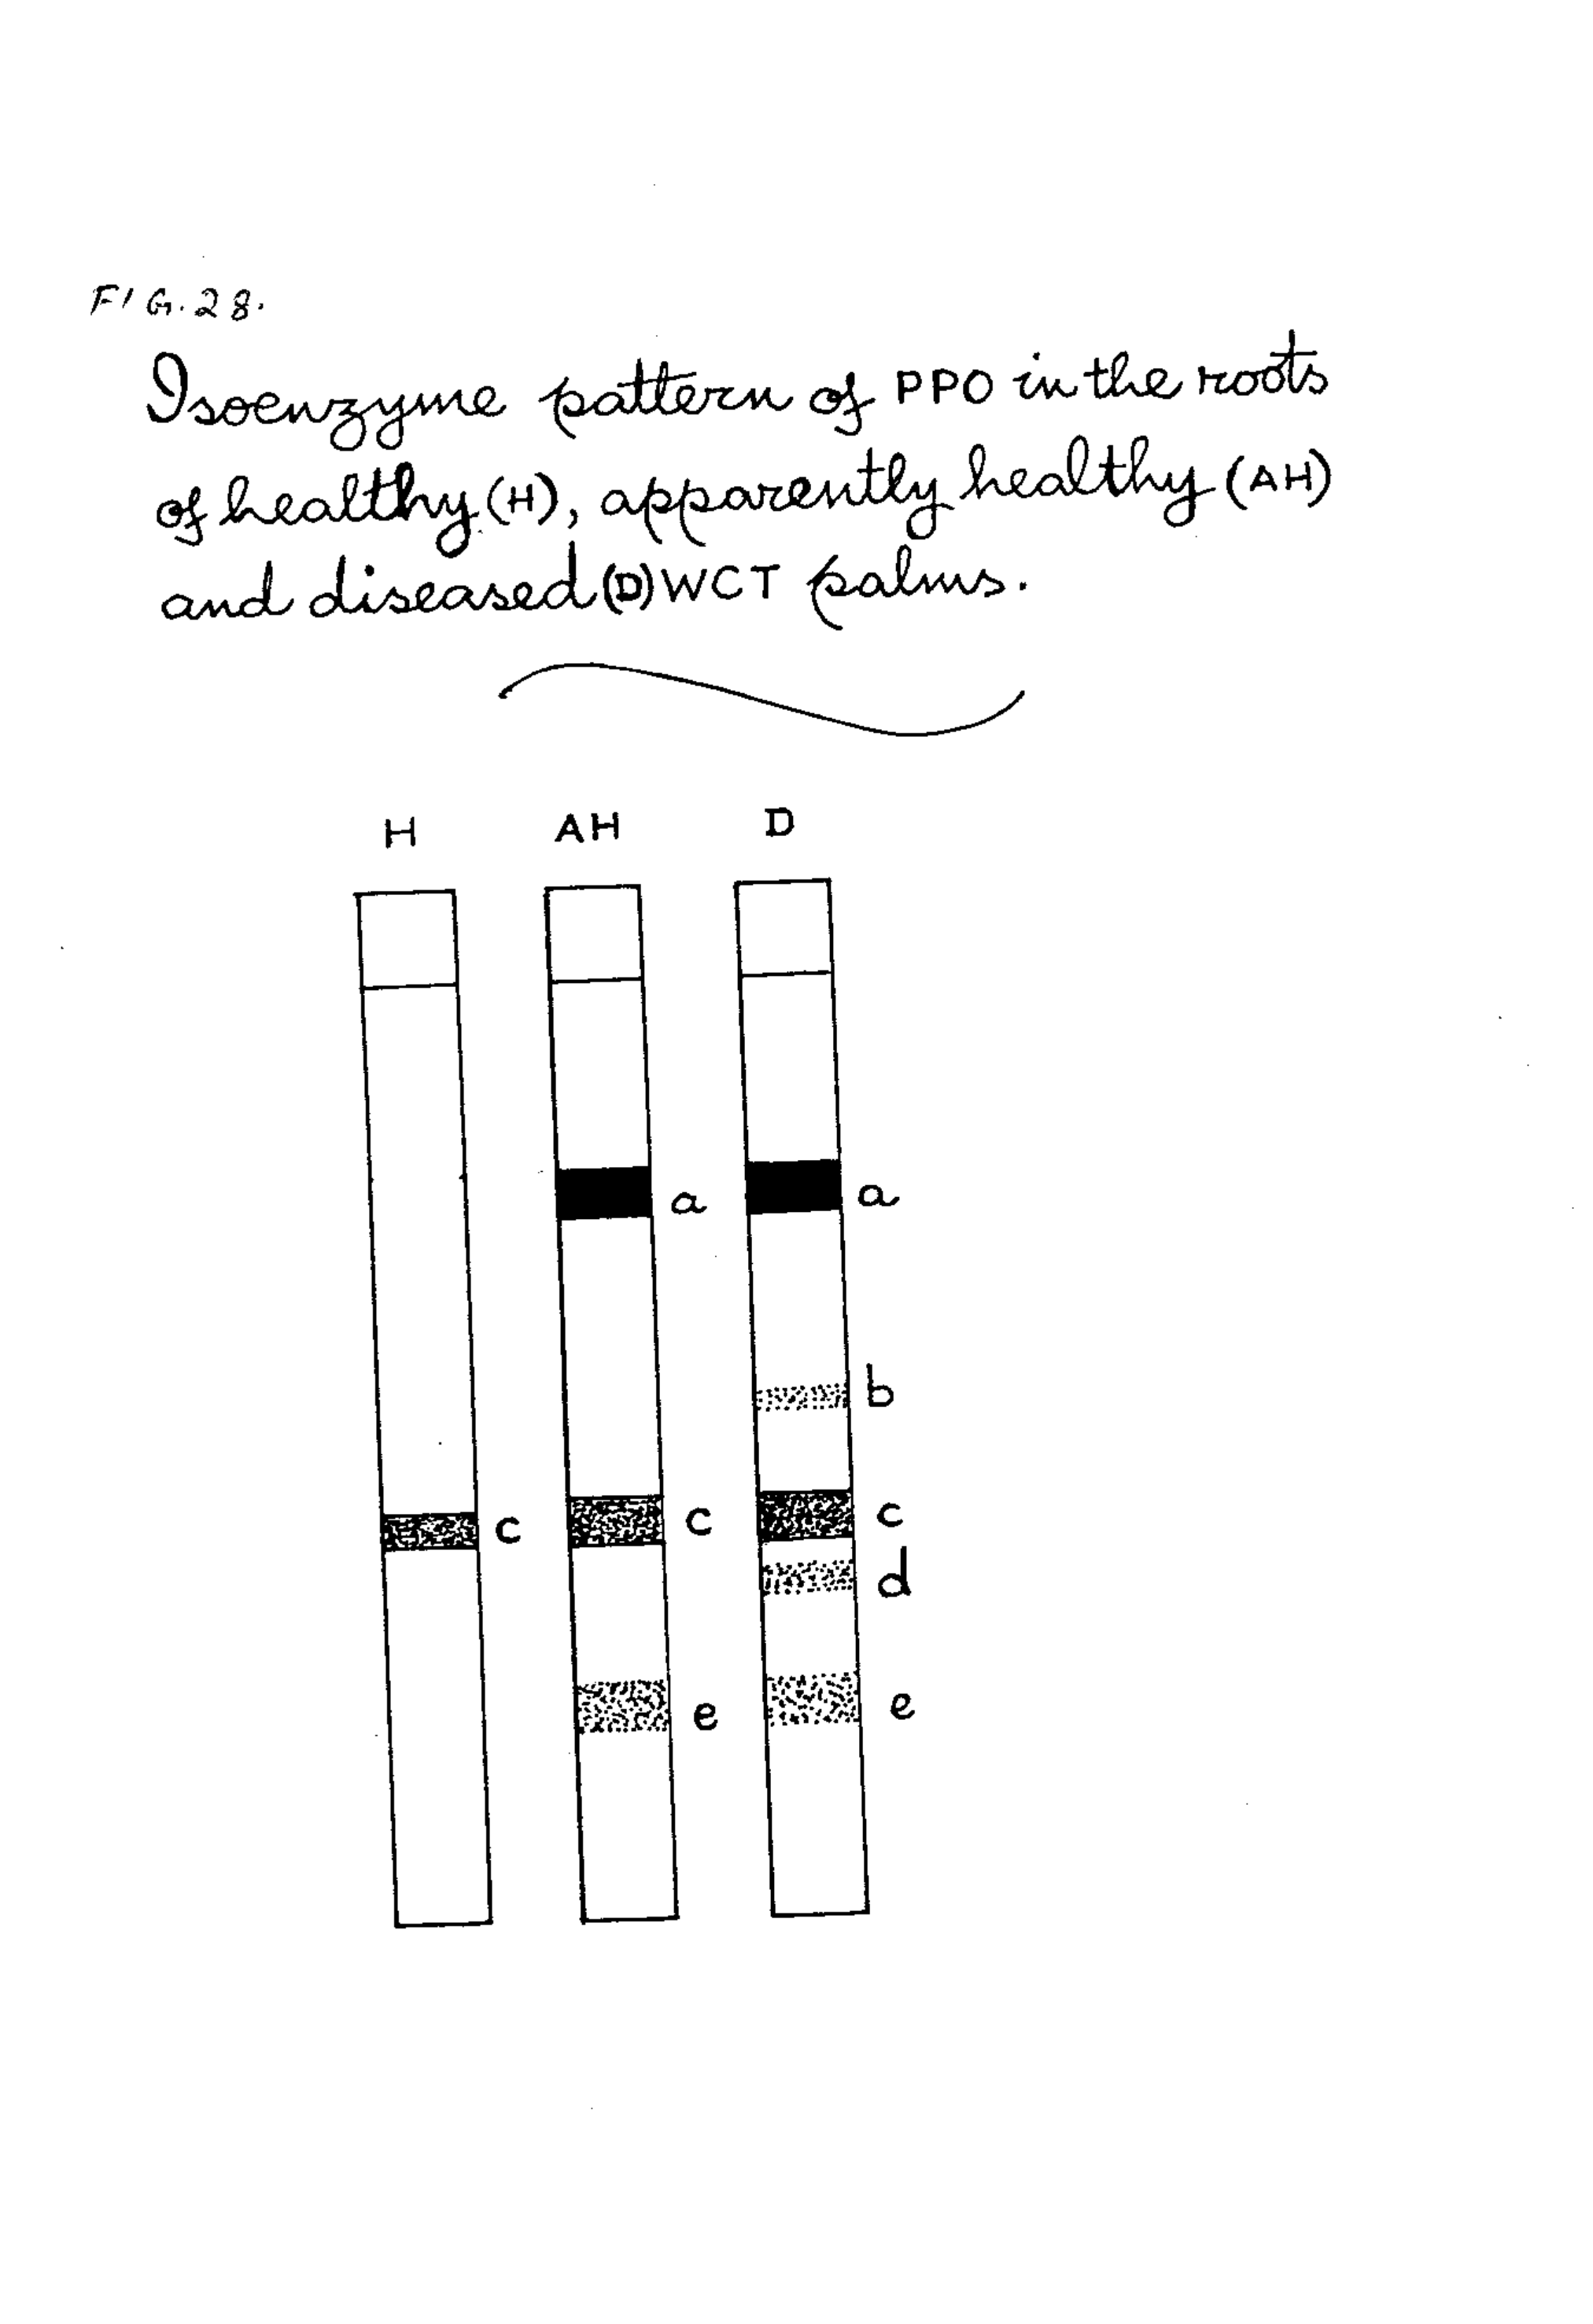 FIG. 28.
Isoenzyme pattern of PPO in the roots
of healthy (H), apparently healthy (AH)
and diseased (D) WCT palms.
H AH D
a a
b
c c c
d
e e